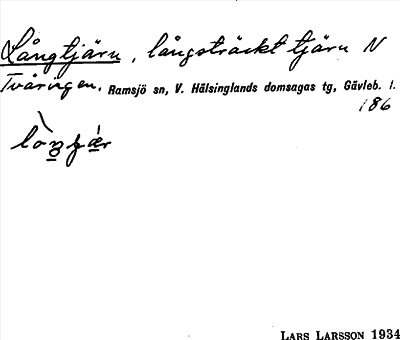 Långtjärn, långsträckt tjärn N
Tvåringen, Ramsjö sn, V. Hälsinglands domsagas tg, Gävleb. l.
186
LARS LARSSON 1934